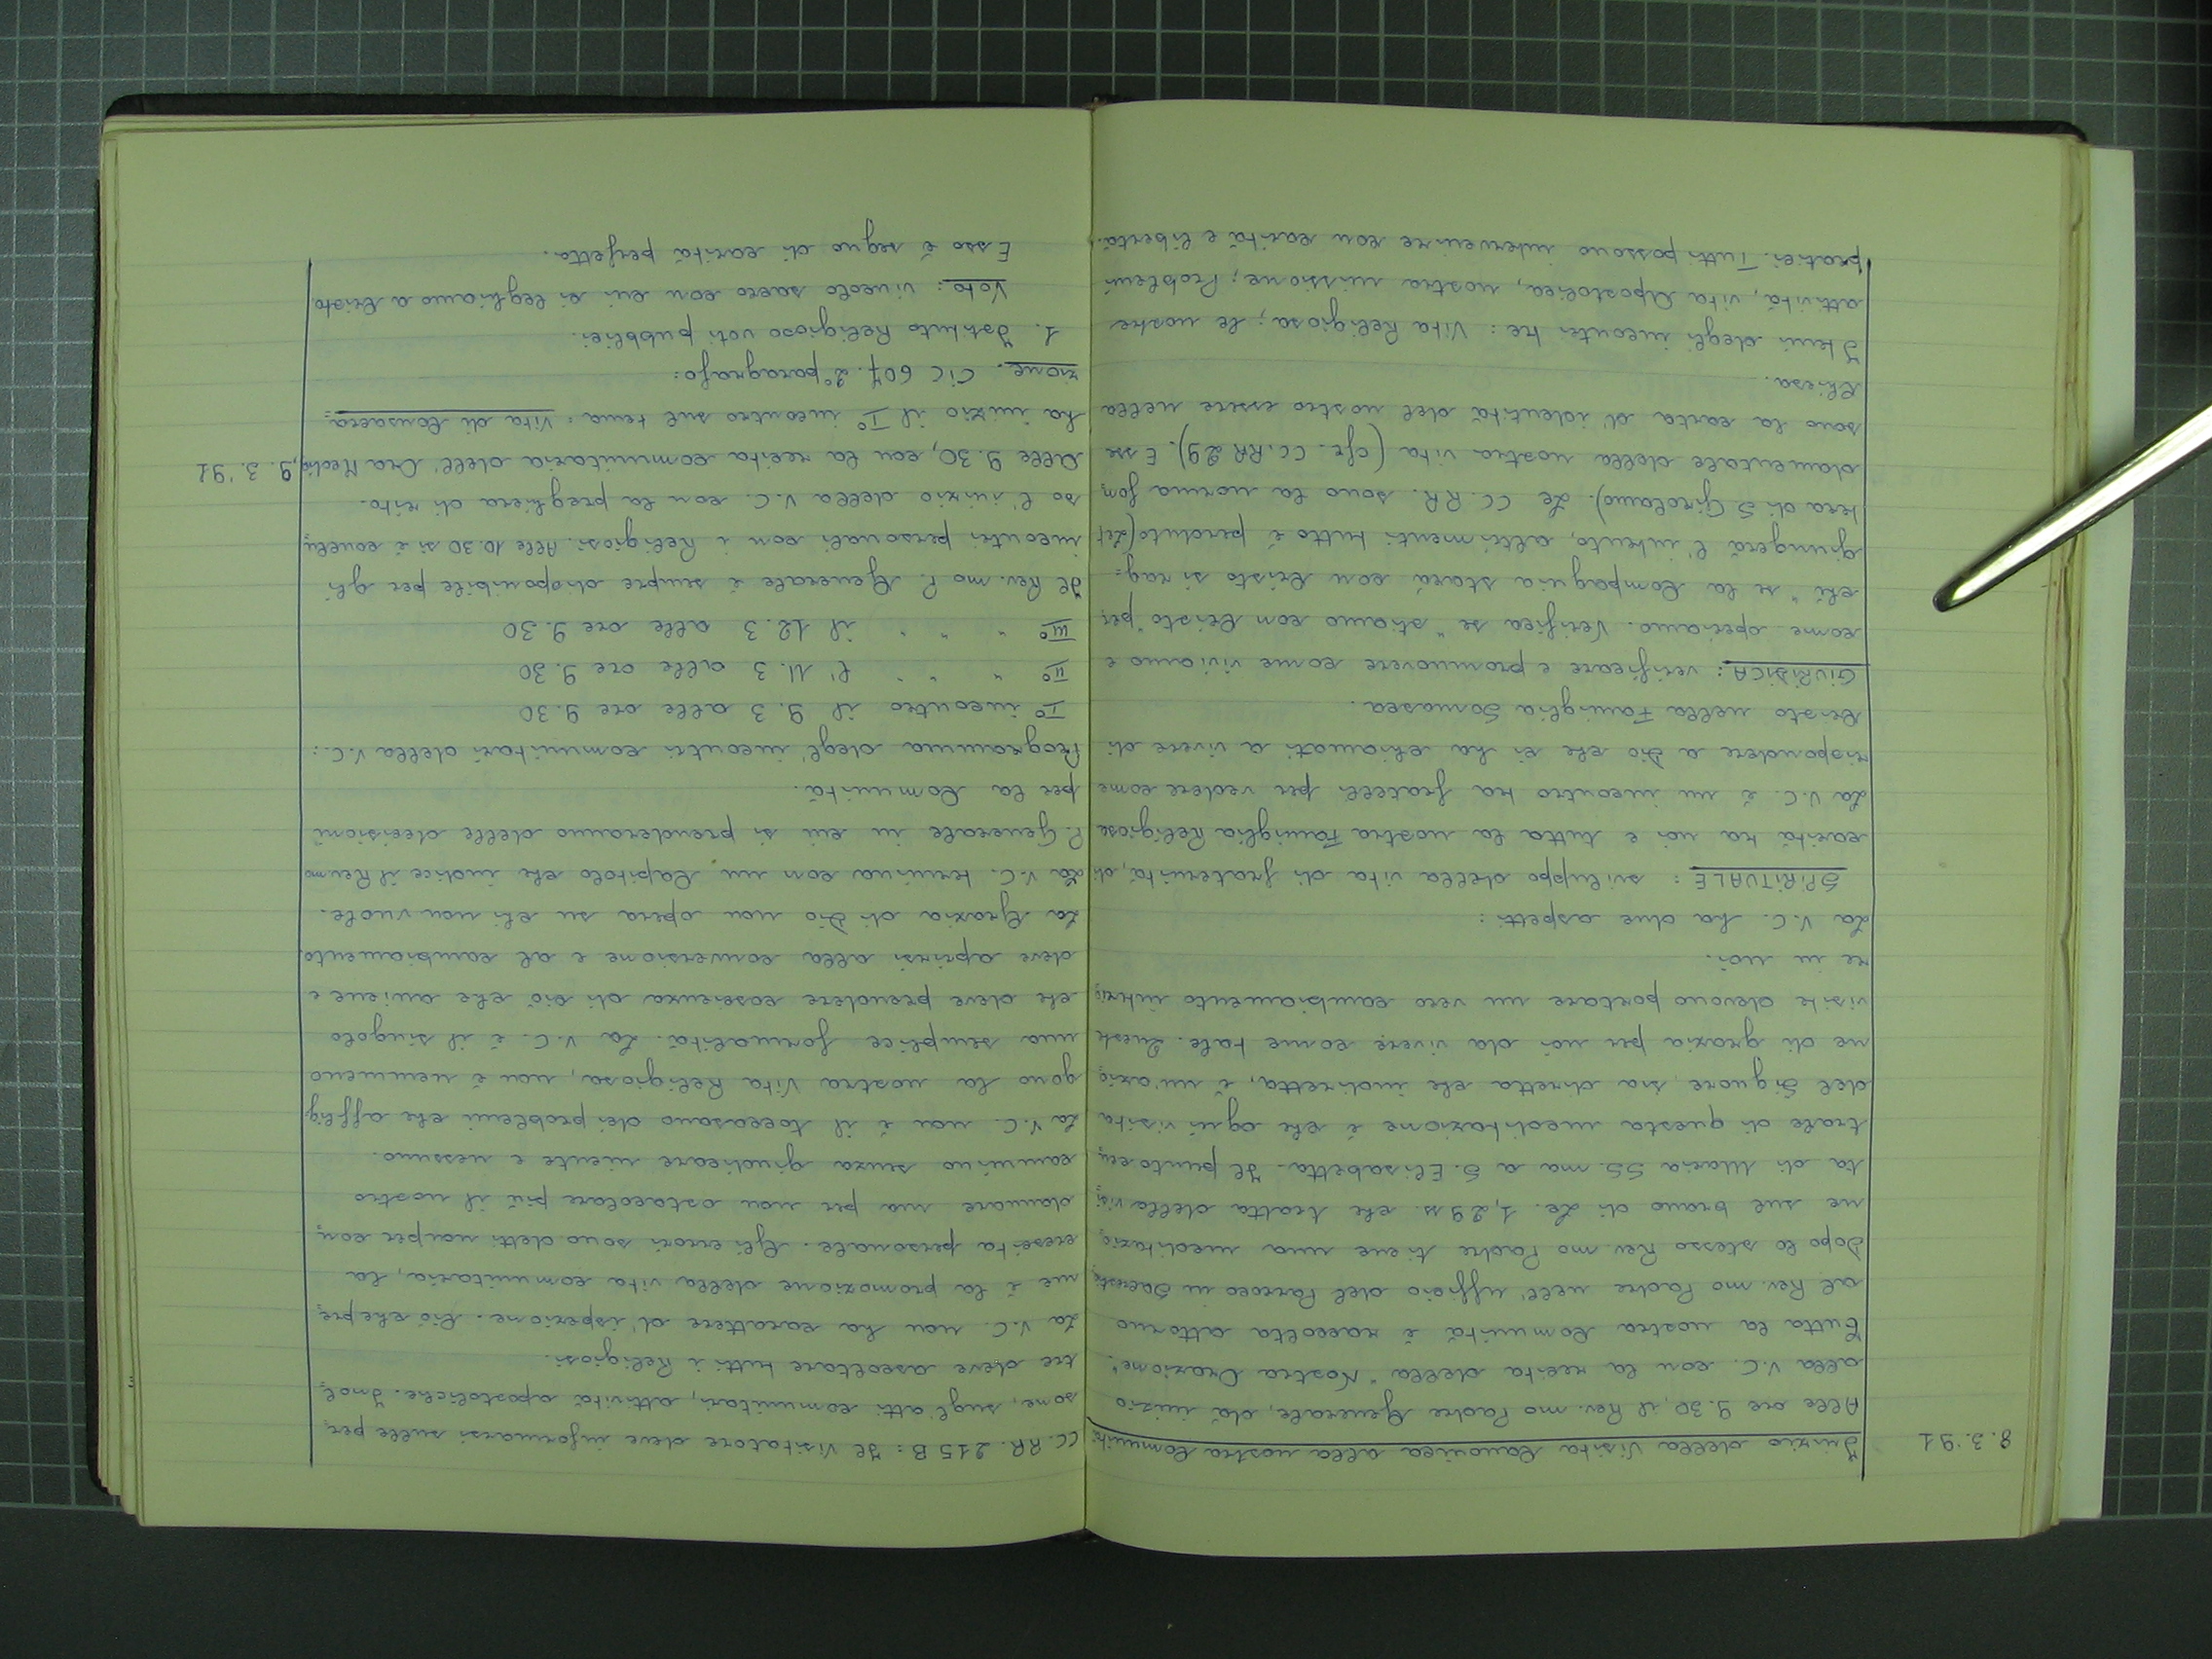 8.3.'91
Inizio della Visita Canonica alla nostra Comunità
Alle ore 9.30 il Rev.mo Padre Generale, dà inizio
alla V.C. con la recita della "Nostra Orazione".
Tutta la nostra Comunità è raccolta attorno
al Rev.mo Padre nell'ufficio del Parroco in
Dopo lo stesso Rev.mo Padre tiene una meditazio
ne sul brano di Lc. 1,29 ss. che tratta della visi
ta di Maria SS.ma a S. Elisabetta. Il punto cen
trale di questa meditazione è che ogni visita
del Signore, sia diretta che indiretta, è un'azio
ne di grazia per noi da vivere come tale. Queste
visite devono portare un vero cambiamento interio
re in noi.
La V.C. ha due aspetti:
SPIRITUALE: sviluppo della vita di fraternità, di
carità tra noi e tutta la nostra Famiglia Religiosa
La V.C. è un incontro tra fratelli per vedere come
rispondere a Dio che ci ha chiamati a vivere di
Cristo nella Famiglia Somasca.
GIURIDICA: verificare e promuovere come viviamo e
come operiamo. Verifica "se "stiamo con Cristo" per
chè "se la Compagnia starà con Cristo si rag=
giungerà l'intento, altrimenti tutto è perduto (Let
tera di S Girolamo). Le CC.RR. sono la norma fon
damentale della nostra vita (cfr. CC.RR 29). Esse
sono la carta d'identità del nostro essere nella
Chiesa.
I temi degli incontri tre: Vita Religiosa; le nostre
attività, vita Apostolica, nostra missione; Problemi
pratici. Tutti possono intervenire con carità e libertà.
CC.RR. 215 B: Il Visitatore deve informarsi sulle per
sone, sugl'atti comunitari, attività apostoliche. Inol
tre deve ascoltare tutti i Religiosi.
La V.C. non ha carattere d'ispezione. Ciò che pre
me è la promozione della vita comunitaria, la
crescita personale. Gli errori sono detti non per con
dannare ma per non ostacolare più il nostro
cammino senza giudicare niente e nessuno.
La V.C. non è il toccasano dei problemi che afflig
gono la nostra Vita Religiosa, non è nemmeno
una semplice formalità. La V.C. è il singolo
che deve prendere coscienza di ciò che aviene e
deve aprirsi alla conversione e al cambiamento.
La Grazia di Dio non opera su chi non vuole.
La V.C. termina con un Capitolo che indice il Rev.mo
P. Generale in cui si prenderanno delle decisioni
per la Comunità.
Programma degl'incontri comunitari della V.C.:
I° incontro il 9.3 alle ore 9.30
II° " " l'11.3 alle ore 9.30
III° " " il 12.3 alle ore 9.30
Il Rev.mo P. Generale è sempre disponibile per gli
incontri personali con i Religiosi. Alle 10.30 si è conclu
so l'inizio della V.C. con la preghiera di rito.
9.3.'91
Alle 9.30, con la recita comunitaria dell'Ora Media,
ha inizio il I° incontro sul tema: Vita di Consacra=
zione. CiC 607. 2° paragrafo:
1. Istituto Religioso voti pubblici.
Voto: vincolo sacro con cui si leghiamo a Cristo.
Esso è segno di carità perfetta.